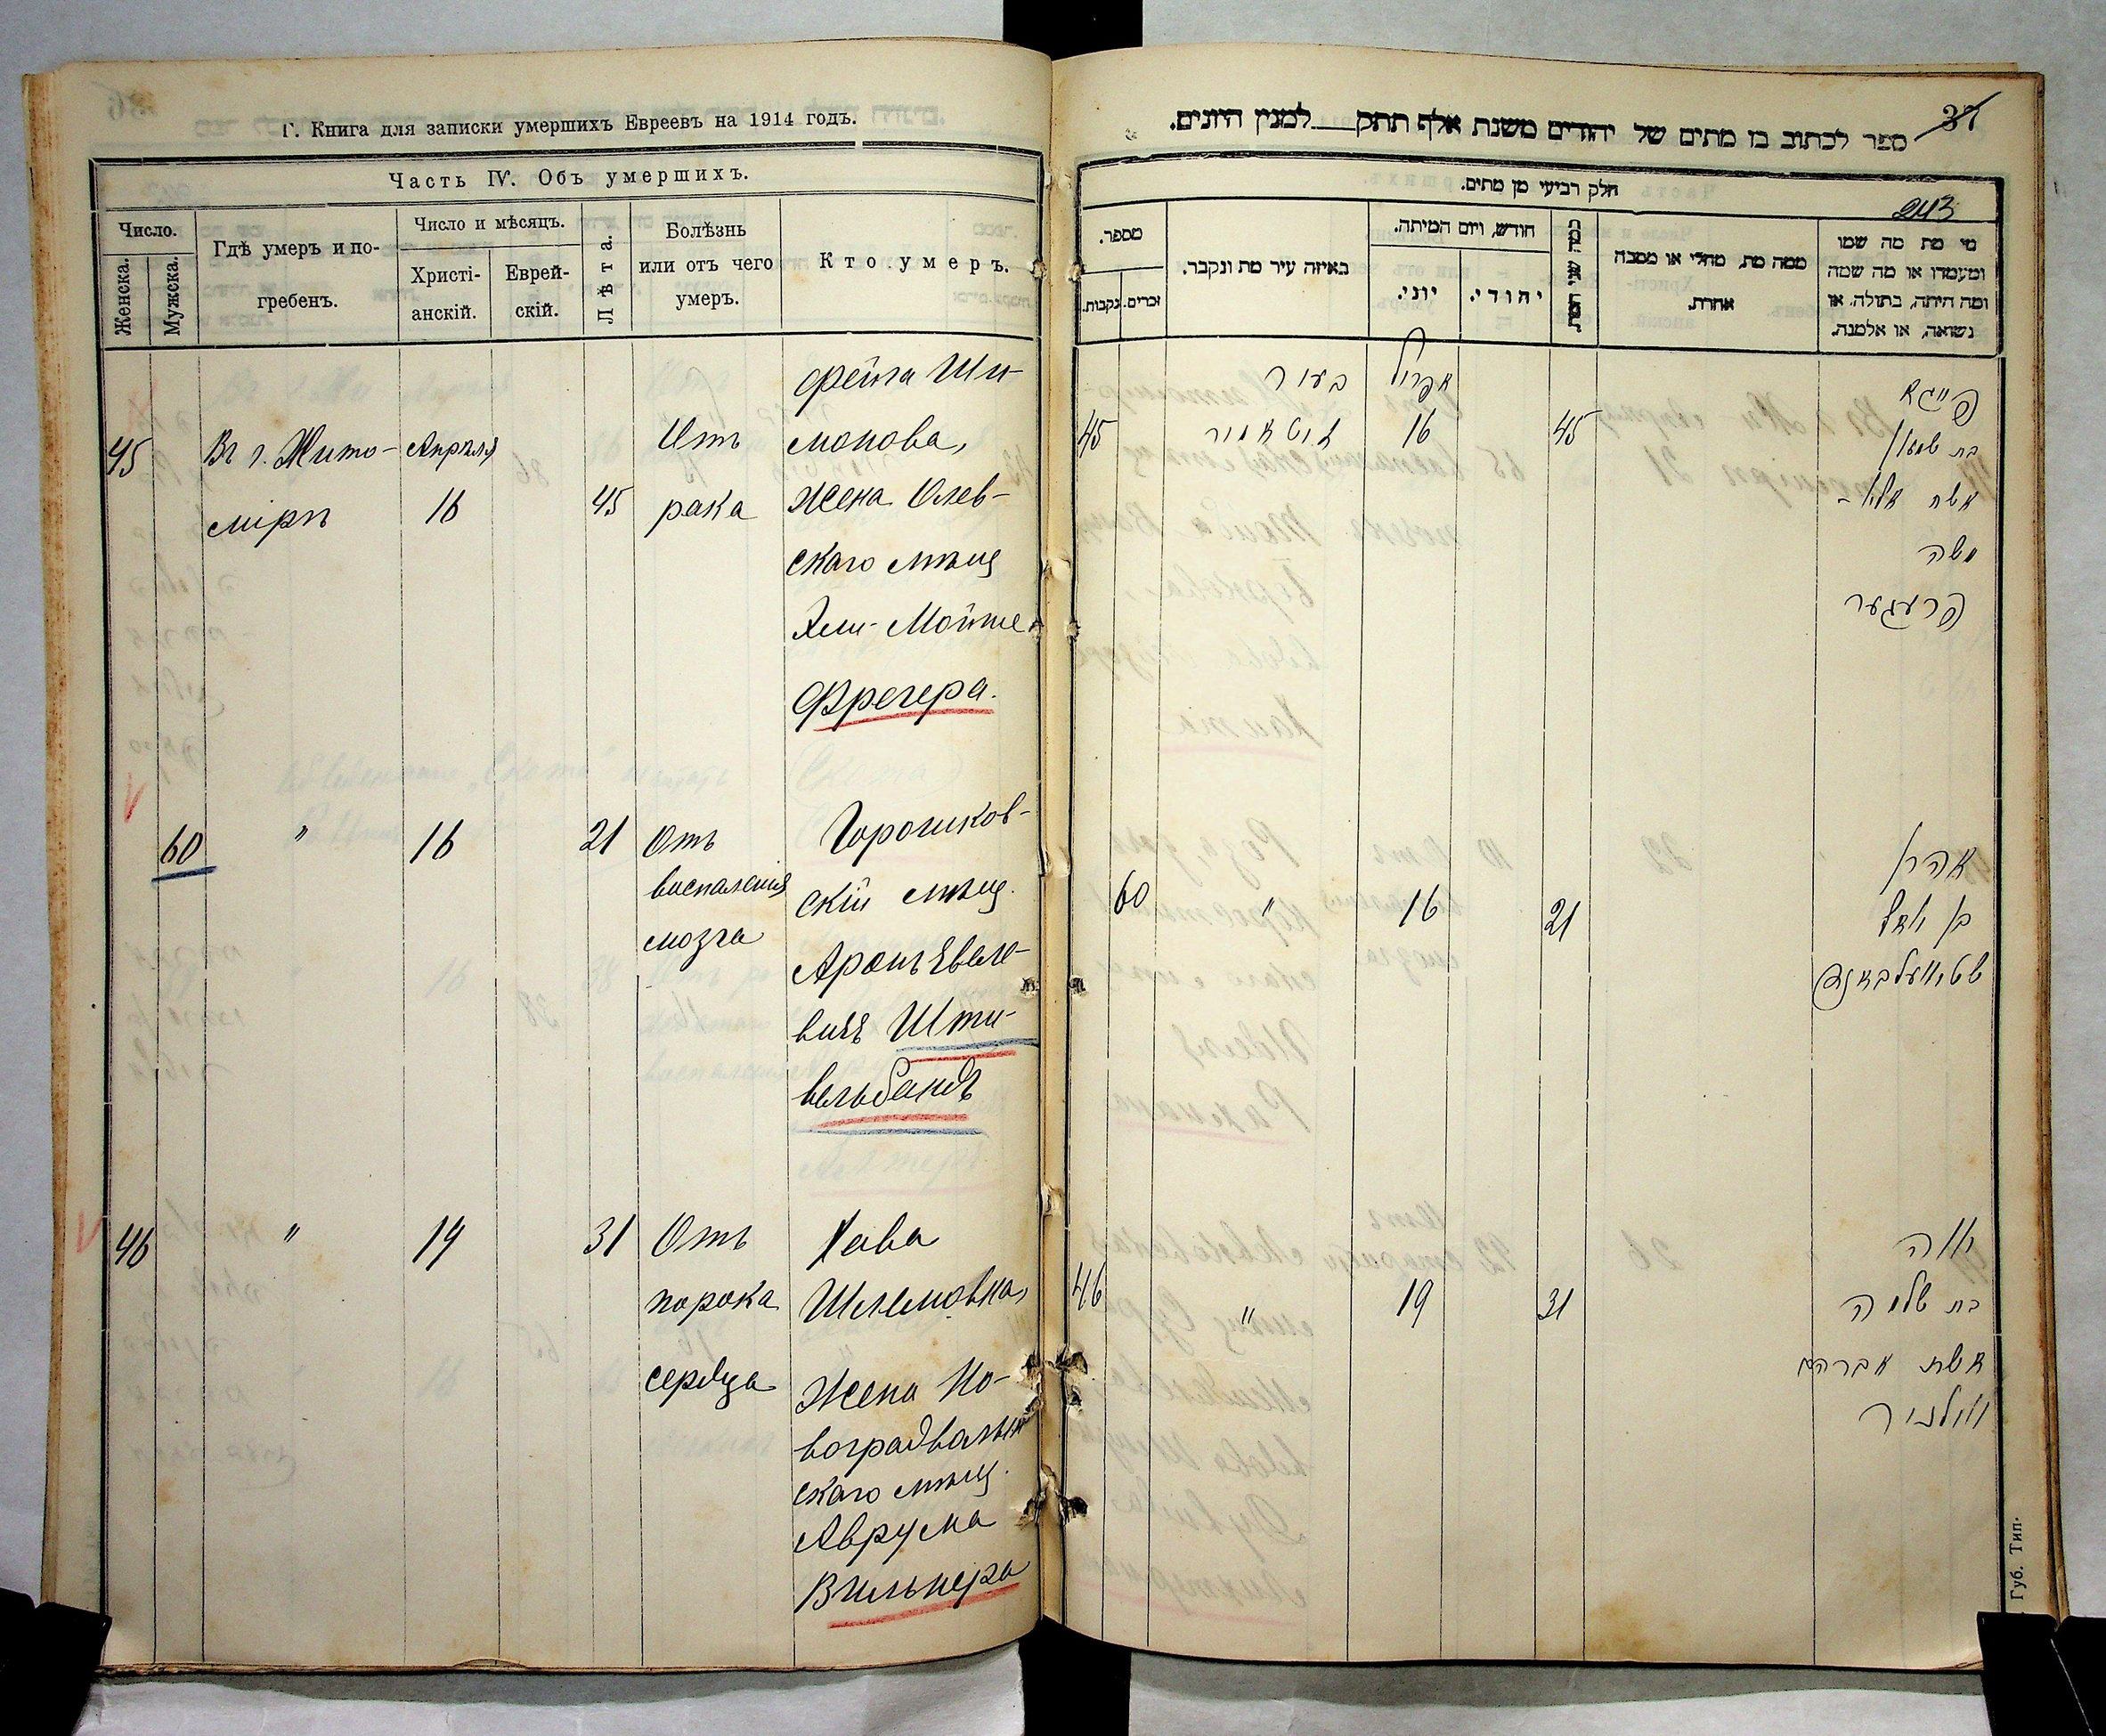 Г. Книга для записки умершихъ Евреевъ на 1914 годъ.
Часть IV. Объ умершихъ.
Число.
Женска.
Мужска.
Гдѣ умеръ и по-
гребенъ.
Число и мѣсяцъ.
Христі-
анскій.
Еврей-
скій.
Лѣта.
Болѣзнь
или отъ чего
умеръ.
Кто умеръ.
45
Въ г. Жито-
мірѣ
Апрѣля
16
45
Отъ
рака
Фейга Ши-
монова,
жена Олев-
скаго мѣщ
Эли-Мойше
Фрегера.
60
"
16
21
Отъ
воспаленія
мозга
Горошков-
скій мѣщ.
Аронъ Евзе-
вичъ Шти-
вельбандъ
46
"
19
31
Отъ
порока
сердца
Хава
Шлемовна,
жена Но-
воградволын
скаго мѣщ.
Аврума
Вильнера
37
ספר לכתוב בו מתים של יהודים משנת אלף תתק למנין היונים.
חלק רביעי מן מתים.
243
מספר.
נקבות.
זכרים.
באיזה עיר מת ונקבר.
חודש, ויום המיתה.
יוני.
יהודי.
כמה שני המת
ממה מת, מחלי או מסבה
אחרת.
מי מת מה שמו
ומעמדו או מה שמה
ומה היתה, בתולה, או
נשואה, או אלמנה.
45
בעיר
זיטאמיר
אפריל
16
45
פייגא
בת שמעון
אשת אלי-
משה
פרעגער
60
"
16
21
אהרן
בן
שטיוועלבאנד
46
"
19
31
חוה
בת שלמה
אשת אברהם
ווילנער
Губ. Тип.